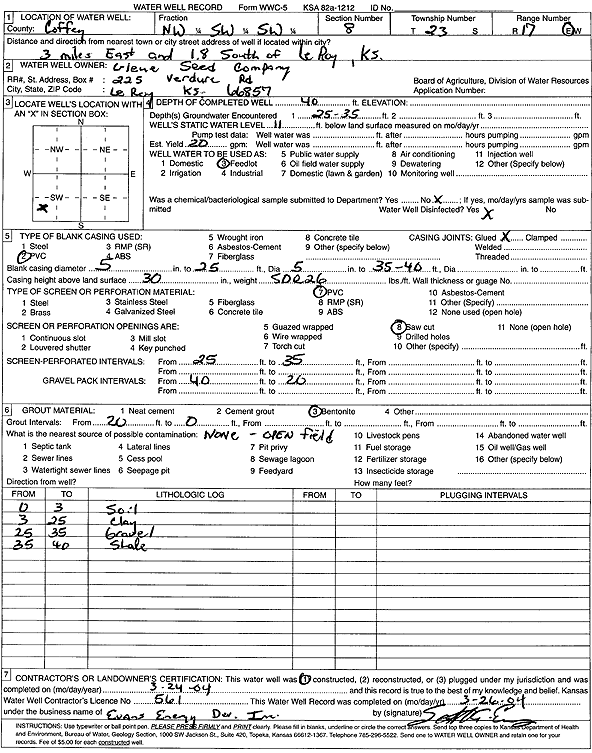 WATER WELL RECORD Form WWC-5 KSA 82a-1212 ID No.
1 LOCATION OF WATER WELL: Fraction Section Number Township Number Range Number
County: Coffey NW ¼ SW ¼ SW ¼ 8 T 23 S R 17 E W
Distance and direction from nearest town or city street address of well if located within city?
3 miles East and 1.8 South of Le Roy, Ks.
2 WATER WELL OWNER: Seed Company
RR#, St. Address, Box # : 225 Verdure Rd Board of Agriculture, Division of Water Resources
City, State, ZIP Code : Le Roy Ks. 66857 Application Number:
3 LOCATE WELL'S LOCATION WITH AN "X" IN SECTION BOX:
N
NW NE
W E
SW SE
X
S
4 DEPTH OF COMPLETED WELL 40 ft. ELEVATION:
Depth(s) Groundwater Encountered 1 25-35 ft. 2 ft. 3 ft.
WELL'S STATIC WATER LEVEL 11 ft. below land surface measured on mo/day/yr
Pump test data: Well water was ft. after hours pumping gpm
Est. Yield 20 gpm: Well water was ft. after hours pumping gpm
WELL WATER TO BE USED AS: 5 Public water supply 8 Air conditioning 11 Injection well
1 Domestic 3 Feedlot 6 Oil field water supply 9 Dewatering 12 Other (Specify below)
2 Irrigation 4 Industrial 7 Domestic (lawn & garden) 10 Monitoring well
Was a chemical/bacteriological sample submitted to Department? Yes No X ; If yes, mo/day/yrs sample was submitted Water Well Disinfected? Yes X No
5 TYPE OF BLANK CASING USED: 5 Wrought iron 8 Concrete tile CASING JOINTS: Glued X Clamped
1 Steel 3 RMP (SR) 6 Asbestos-Cement 9 Other (specify below) Welded
2 PVC 4 ABS 7 Fiberglass Threaded
Blank casing diameter 5 in. to 25 ft., Dia 5 in. to 35-40 ft., Dia in. to ft.
Casing height above land surface 30 in., weight SDR26 lbs./ft. Wall thickness or guage No.
TYPE OF SCREEN OR PERFORATION MATERIAL: 7 PVC 10 Asbestos-Cement
1 Steel 3 Stainless Steel 5 Fiberglass 8 RMP (SR) 11 Other (Specify)
2 Brass 4 Galvanized Steel 6 Concrete tile 9 ABS 12 None used (open hole)
SCREEN OR PERFORATION OPENINGS ARE: 5 Guazed wrapped 8 Saw cut 11 None (open hole)
1 Continuous slot 3 Mill slot 6 Wire wrapped 9 Drilled holes
2 Louvered shutter 4 Key punched 7 Torch cut 10 Other (specify) ft.
SCREEN-PERFORATED INTERVALS: From 25 ft. to 35 ft., From ft. to ft.
From ft. to ft., From ft. to ft.
GRAVEL PACK INTERVALS: From 40 ft. to 20 ft., From ft. to ft.
From ft. to ft., From ft. to ft.
6 GROUT MATERIAL: 1 Neat cement 2 Cement grout 3 Bentonite 4 Other
Grout Intervals: From 20 ft. to 0 ft., From ft. to ft., From ft. to ft.
What is the nearest source of possible contamination: NONE - OPEN field 10 Livestock pens 14 Abandoned water well
1 Septic tank 4 Lateral lines 7 Pit privy 11 Fuel storage 15 Oil well/Gas well
2 Sewer lines 5 Cess pool 8 Sewage lagoon 12 Fertilizer storage 16 Other (specify below)
3 Watertight sewer lines 6 Seepage pit 9 Feedyard 13 Insecticide storage
Direction from well? How many feet?
FROM TO LITHOLOGIC LOG FROM TO PLUGGING INTERVALS
0 3 Soil
3 25 Clay
25 35 Gravel
35 40 Shale
7 CONTRACTOR'S OR LANDOWNER'S CERTIFICATION: This water well was (1) constructed, (2) reconstructed, or (3) plugged under my jurisdiction and was
completed on (mo/day/year) 3-24-04 and this record is true to the best of my knowledge and belief. Kansas
Water Well Contractor's Licence No 561 This Water Well Record was completed on (mo/day/yr) 3-26-04
under the business name of Evans Energy Dev. Inc. by (signature)
INSTRUCTIONS: Use typewriter or ball point pen. PLEASE PRESS FIRMLY and PRINT clearly. Please fill in blanks, underline or circle the correct answers. Send top three copies to Kansas Department of Health
and Environment, Bureau of Water, Geology Section, 1000 SW Jackson St., Suite 420, Topeka, Kansas 66612-1367. Telephone 785-296-5522. Send one to WATER WELL OWNER and retain one for your
records. Fee of $5.00 for each constructed well.